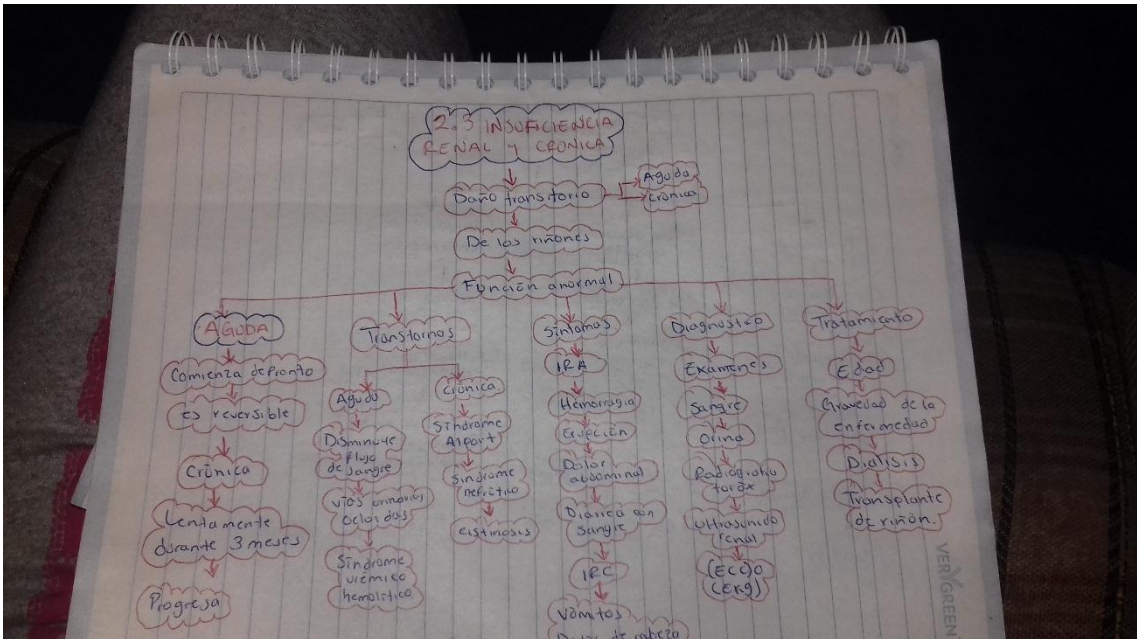 2.3 INSUFICIENCIA
RENAL Y CRONICA
Daño transitorio
Aguda
Crónica
De los riñones
Función anormal
AGUDA
Comienza de pronto
es reversible
Crónica
Lentamente
durante 3 meses
Progresa
Transtornos
Agudo
Disminuye
flujo
de sangre
vías urinarias
ocluidas
Síndrome
urémico
hemolítico
Crónica
Síndrome
Alport
Síndrome
nefrótico
cistinosis
Síntomas
IRA
Hemorragia
Erupción
Dolor
abdominal
Diarrea con
Sangre
IRC
Vómitos
Dolor de cabeza
Diagnostico
Examenes
Sangre
Orina
Radiografía
torax
Ultrasonido
renal
(ECC)O
(EKg)
Tratamiento
Edad
Gravedad de la
enfermedad
Dialisis
Transplante
de riñón.
VERYGREEN